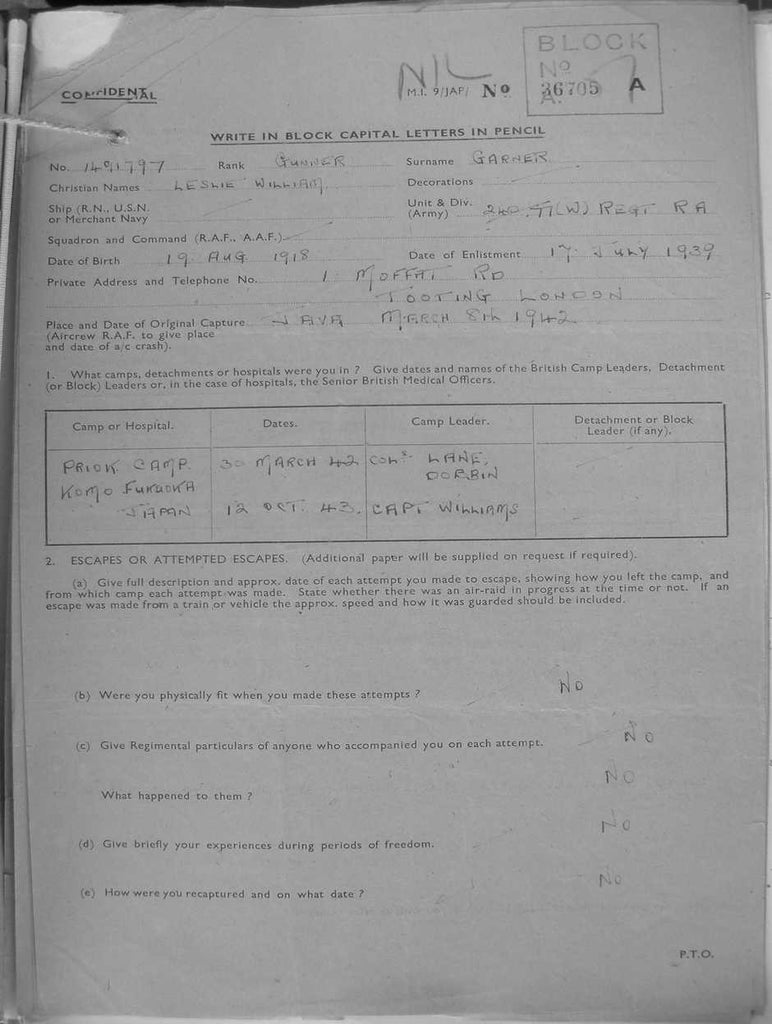 BLOCK
No
NIL
CONFIDENTIAL M.I. 9/JAP/ No 36705 A
A.
WRITE IN BLOCK CAPITAL LETTERS IN PENCIL
No. 1491797 Rank GUNNER Surname GARNER
Christian Names LESLIE WILLIAM Decorations
Ship (R.N., U.S.N. or Merchant Navy
Unit & Div. (Army) 2nd. 77(W) REGT RA
Squadron and Command (R.A.F., A.A.F.)
Date of Birth 19 AUG 1918 Date of Enlistment 17 JULY 1939
Private Address and Telephone No. 1 MOFFAT RD
TOOTING LONDON
Place and Date of Original Capture JAVA MARCH 8th 1942
(Aircrew R.A.F. to give place
and date of a/c crash).
1. What camps, detachments or hospitals were you in ? Give dates and names of the British Camp Leaders, Detachment
(or Block) Leaders or, in the case of hospitals, the Senior British Medical Officers.
Camp or Hospital. Dates. Camp Leader. Detachment or Block
Leader (if any).
PRIOK CAMP. 30 MARCH 42 COLs LANE,
DORBIN
KOMO FUKUOKA
JAPAN 12 OCT. 43. CAPT WILLIAMS
2. ESCAPES OR ATTEMPTED ESCAPES. (Additional paper will be supplied on request if required).
(a) Give full description and approx. date of each attempt you made to escape, showing how you left the camp, and
from which camp each attempt was made. State whether there was an air-raid in progress at the time or not. If an
escape was made from a train or vehicle the approx. speed and how it was guarded should be included.
(b) Were you physically fit when you made these attempts ? NO
(c) Give Regimental particulars of anyone who accompanied you on each attempt. NO
NO
What happened to them ?
NO
(d) Give briefly your experiences during periods of freedom.
NO
(e) How were you recaptured and on what date ?
P.T.O.